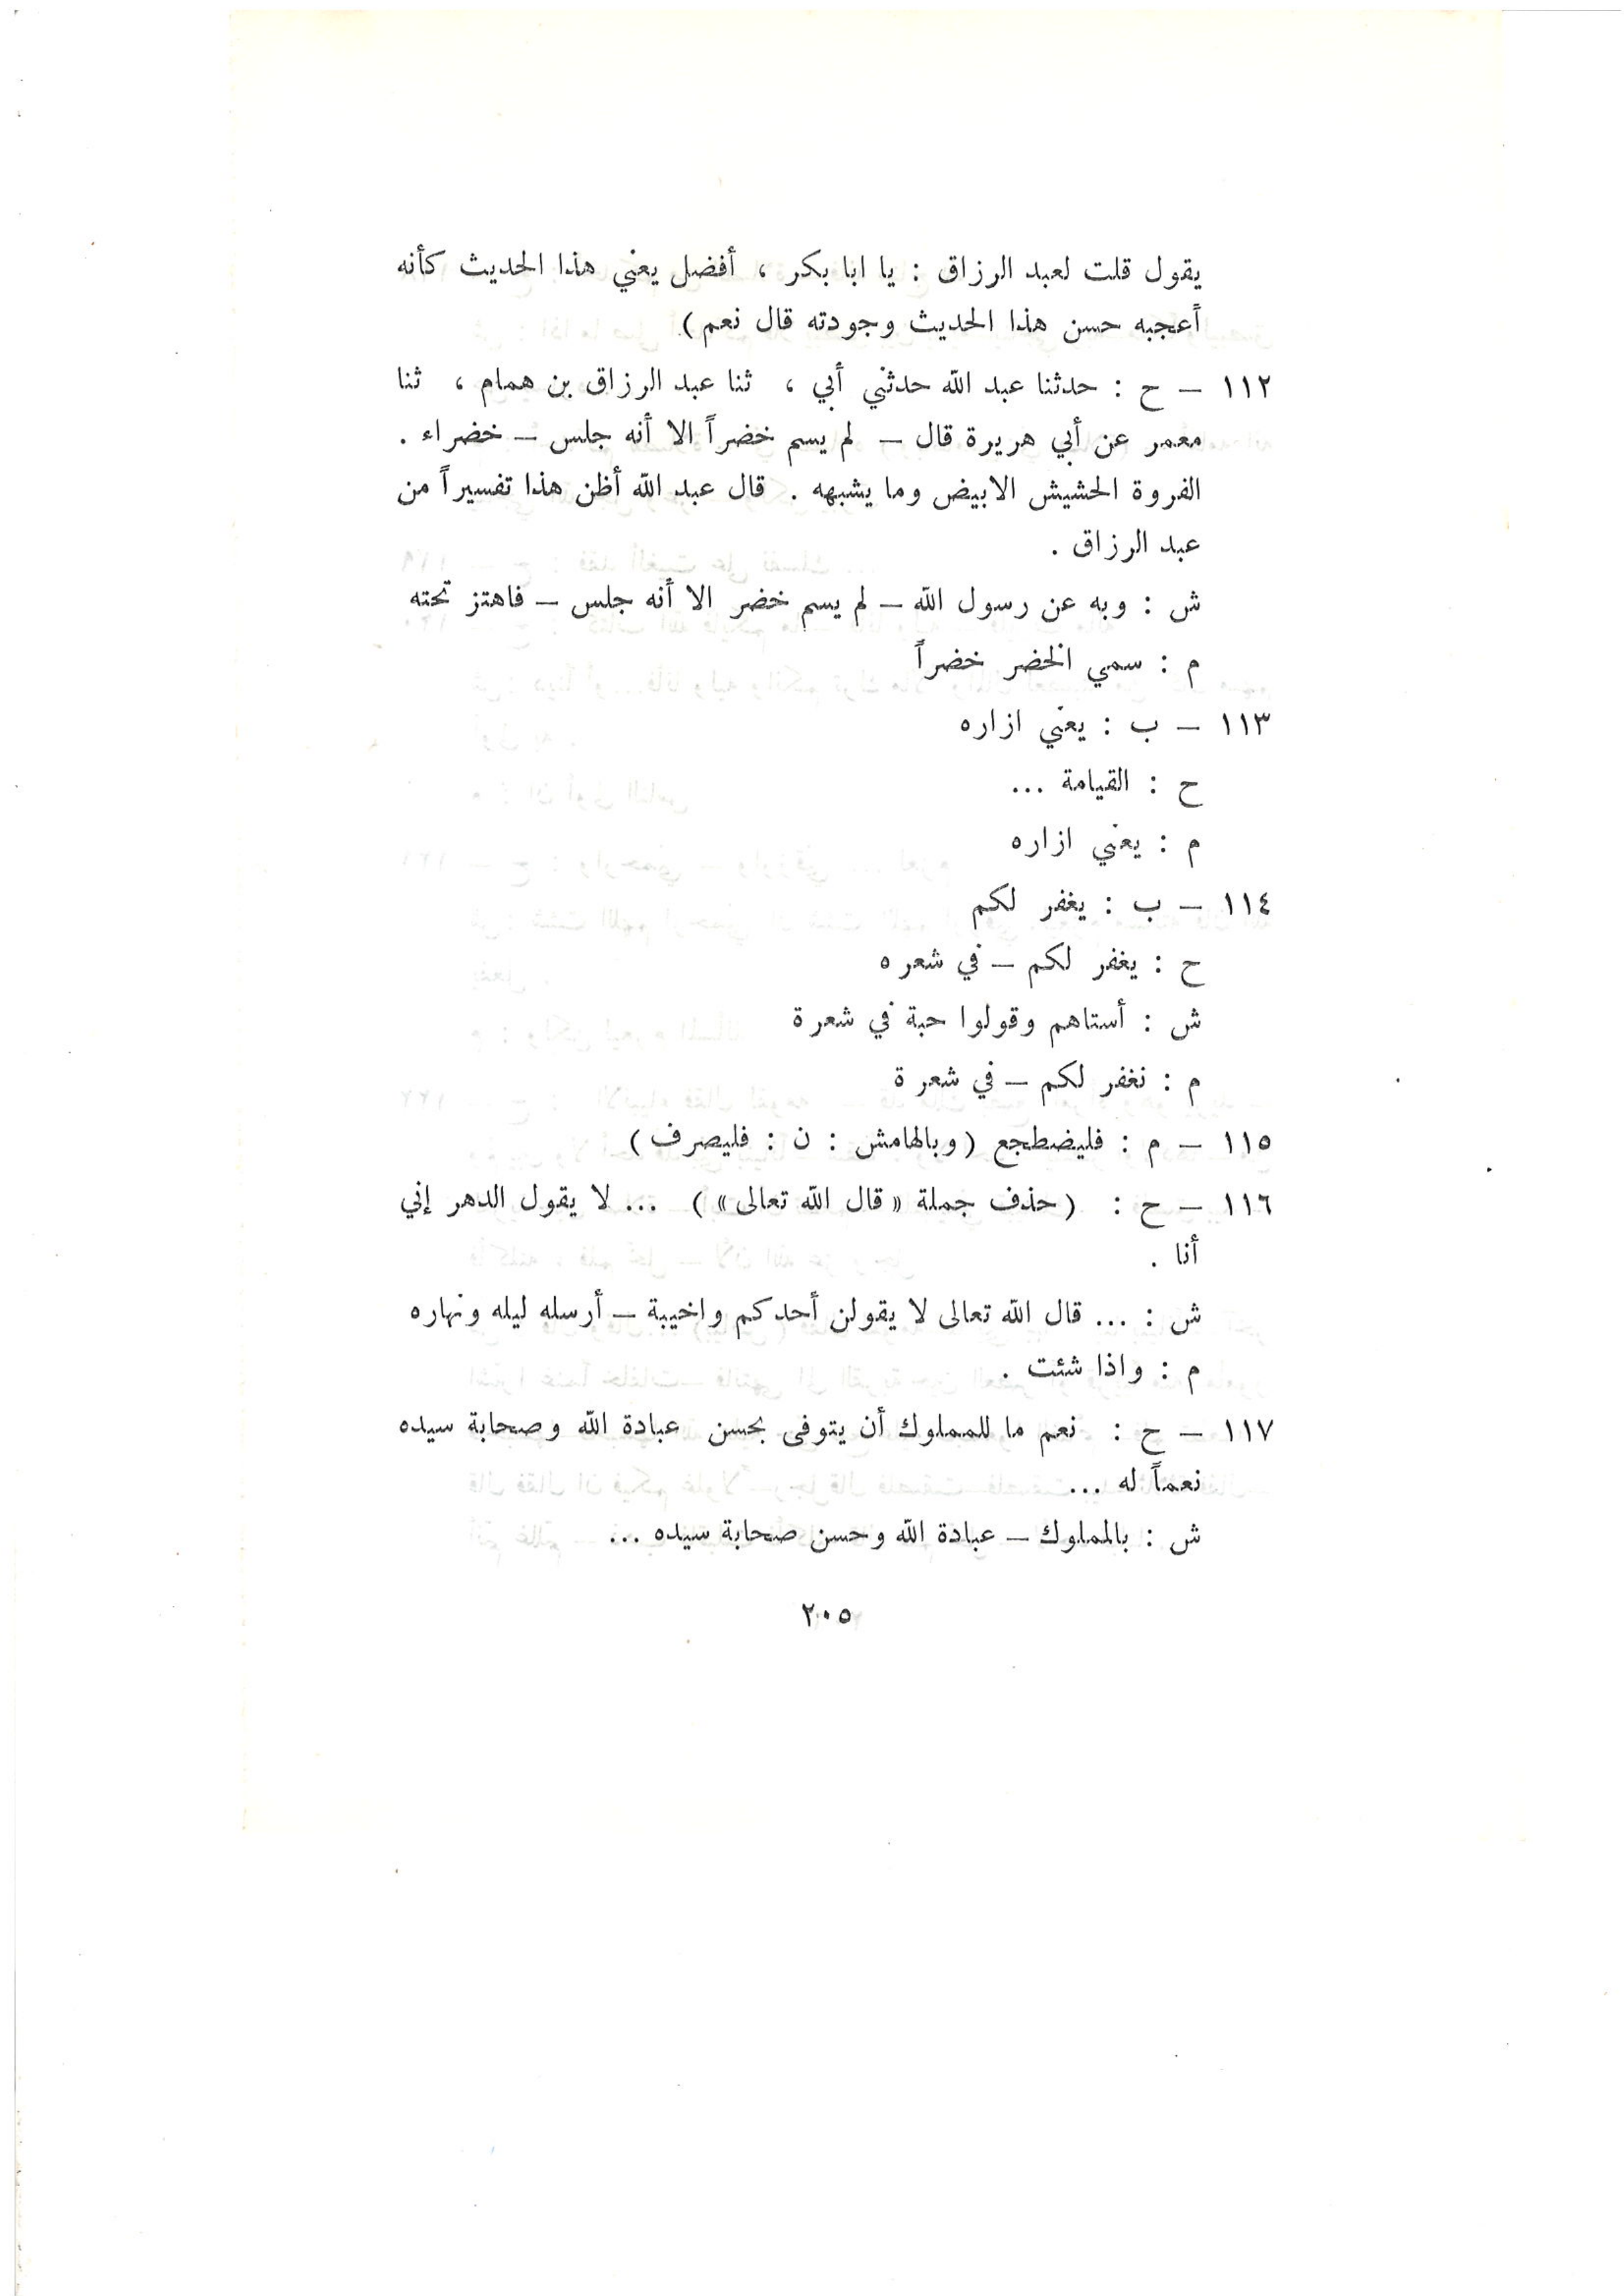 يقول قلت لعبد الرزاق : يا ابا بكر ، أفضل يعني هذا الحديث كأنه
أعجبه حسن هذا الحديث وجودته قال نعم )
١١٢ – ح : حدثنا عبد الله حدثني أبي ، ثنا عبد الرزاق بن همام ، ثنا
معمر عن أبي هريرة قال – لم يسم خضراً الا أنه جلس – خضراء .
الفروة الحشيش الابيض وما يشبهه . قال عبد الله أظن هذا تفسيراً من
عبد الرزاق .
ش : وبه عن رسول الله – لم يسم خضر الا أنه جلس – فاهتز تحته
م : سمي الخضر خضراً
١١٣ – ب : يعني ازاره
ح : القيامة ...
م : يعني ازاره
١١٤ – ب : يغفر لكم
ح : يغفر لكم – في شعره
ش : أستاهم وقولوا حبة في شعرة
م : نغفر لكم – في شعرة
١١٥ – م : فليضطجع ( وبالهامش : ن : فليصرف )
١١٦ – ح : ( حذف جملة « قال الله تعالى » ) ... لا يقول الدهر إني
أنا .
ش : ... قال الله تعالى لا يقولن أحدكم واخيبة – أرسله ليله ونهاره
م : واذا شئت .
١١٧ – ح : نعم ما للمملوك أن يتوفى بحسن عبادة الله وصحابة سيده
نعماً له ...
ش : بالمملوك – عبادة الله وحسن صحابة سيده ...
٢٠٥